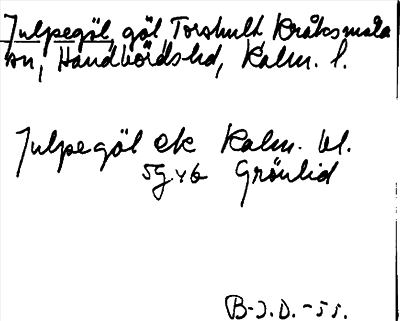 Julpegöl, göl Torshult Kråksmåla
sn, Handbörds hd, Kalm. l.
Julpegöl ek Kalm. bl.
5G v b Grönlid
B-J.D. -55.